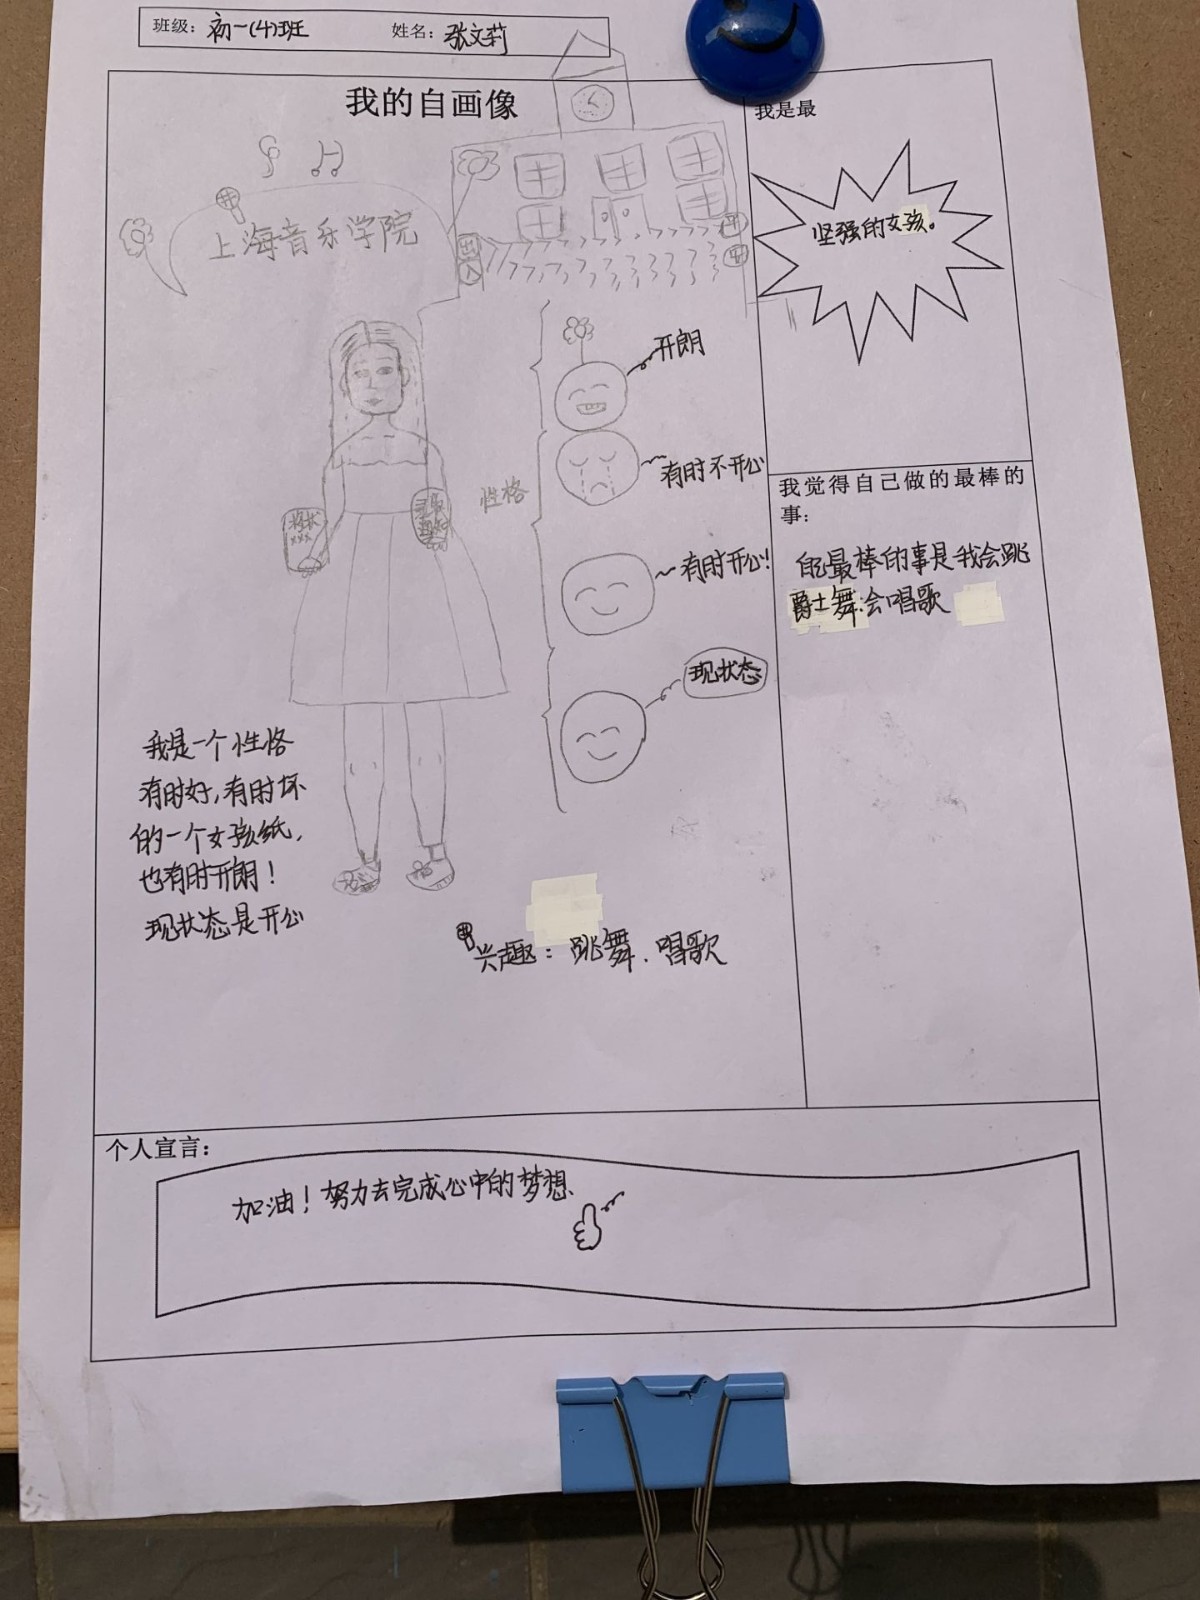 班级：初一(4)班 姓名：张文莉
我的自画像
上海音乐学院
出
入
平
安
性格
开朗
有时不开心
有时开心!
现状态
奖状
xxx
录取
通知
我是一个性格
有时好,有时坏
的一个女孩纸,
也有时开朗!
现状态是开心
兴趣：跳舞、唱歌
我是最
坚强的女孩。
我觉得自己做的最棒的
事：
自己最棒的事是我会跳
爵士舞.会唱歌
个人宣言：
加油! 努力去完成心中的梦想、